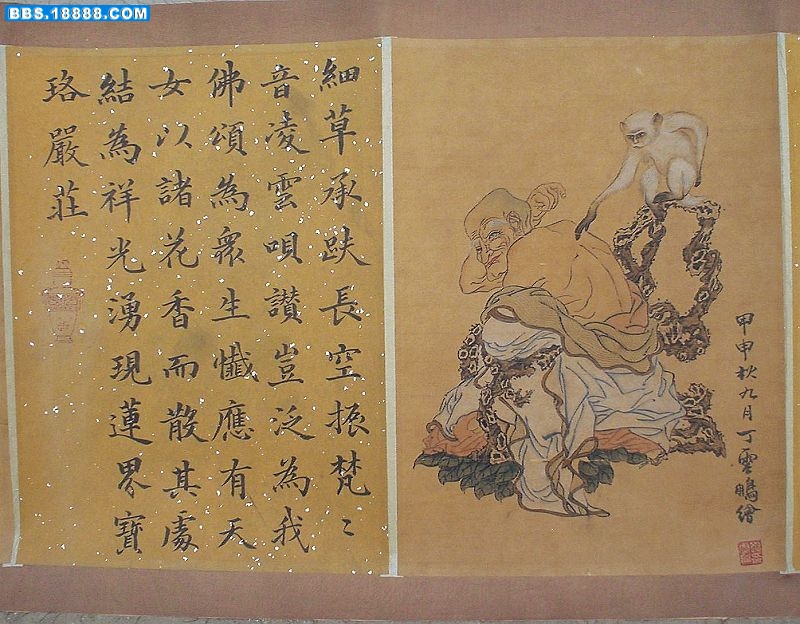 BBS.18888.COM
甲申秋九月丁雲鵬繪
細草承趺長空振梵〻
音凌雲唄讚豈泛為我
佛頌為眾生懺應有天
女以諸花香而散其處
結為祥光湧現蓮界寶
珞嚴莊